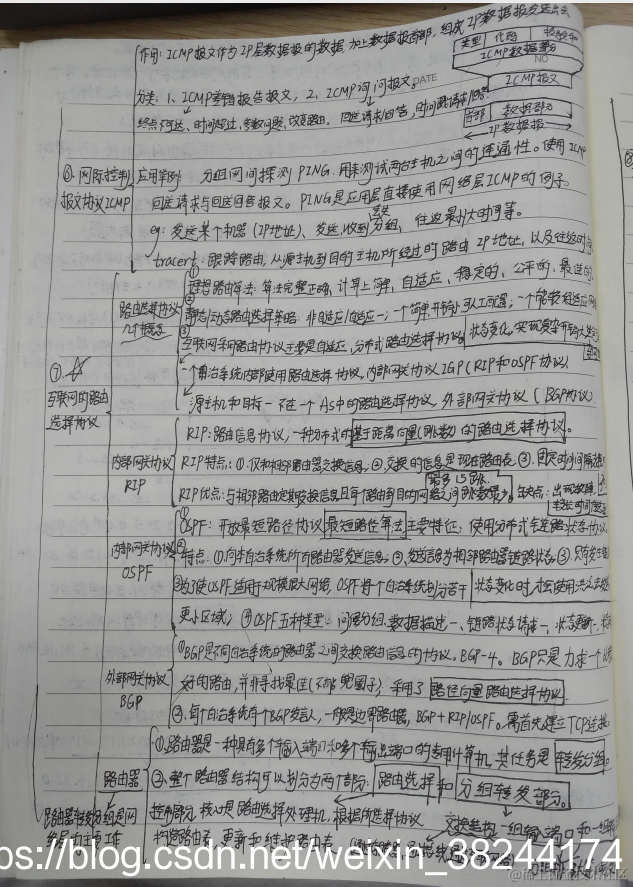 作用: ICMP报文作为IP层数据报的数据加上数据报首部,组成IP数据报发送出去
类型 代码 检验和
ICMP数据部分
NO
ICMP报文
分类: 1、ICMP差错报告报文; 2、ICMP询问报文。
DATE
终点不可达、时间超过、参数问题、改变路由。 回送请求/回答,时间戳请求/回答
首部 数据部分
IP数据报
⑥.网际控制报文协议ICMP
应用举例: 分组网间探测PING,用来测试两台主机之间的连通性。使用ICMP
回送请求与回送回答报文。PING是应用层直接使用网络层ICMP的例子。
eg: 发送某个机器(IP地址)、发送,收到,丢失分组,往返最小大时间等。
tracert: 跟踪路由,从源主机到目的主机所经过的路由IP地址,以及往返时间
⑦.☆
互联网的路由选择协议
路由选择协议几个概念
①理想路由算法: 算法完整正确,计算上简单,自适应、稳定的、公平的,最佳的
②静态/动态路由选择策略: 非自适应/自适应一; 一个简单开销小可人工配置; 一个能较好适应网
③互联网采用路由协议主要是自适应,分布式路由选择协议。状态变化,实现复杂开销大
一个自治系统内部使用路由选择协议,内部网关协议IGP(RIP和OSPF协议)
源主机和目标一不在一个AS中的路由选择协议,外部网关协议(BGP协议)
内部网关协议RIP
RIP: 路由信息协议,一种分布式的基于距离向量(跳数)的路由选择协议。
RIP特点: ①.仅和相邻路由器交换信息,②.交换的信息是现在路由表 ③.固定时间间隔
最多15跳
RIP优点: 与相邻路由定期交换信息且每个路由到目的网络之间跳数最少。缺点: 出现故障
较长时间
内部网关协议OSPF
①OSPF: 开放最短路径协议 最短路径算法 主要特征: 使用分布式链路状态协议
②特点: ①.向本自治系统所有路由器发送信息 ②.发送信息为相邻路由器链路状态 ③.只有发生
③为了使OSPF适用于规模很大网络,OSPF将一个自治系统划分若干 状态变化时,才会使用洪泛法
更小区域; ④OSPF五种类型: 问候分组、数据描述一、链路状态请求一、状态更新一、状
外部网关协议BGP
①BGP是不同自治系统的路由器之间交换路由信息的协议。BGP-4。BGP只是力求一个比较
好的路由,并非寻找最佳(不能兜圈子),采用了路径向量路由选择协议
②.每个自治系统有个BGP发言人,一般是边界路由器,BGP+RIP/OSPF。需首先建立TCP连接
路由器
路由器转发分组是网络层的主要工作
①.路由器是一种具有多个输入端口和多个输出端口的专用计算机,其任务是转发分组。
②.整个路由器结构可以划分为两个部分: 路由选择和分组转发部分。
控制部分,核心是路由选择处理机,根据所选协议
交换结构 一组输入端口和一组
构造路由表,更新和维护路由表
https://blog.csdn.net/weixin_38244174